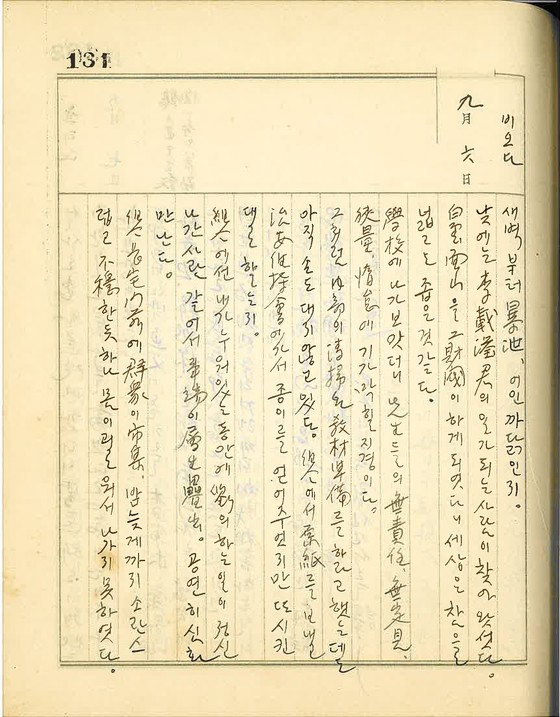 131
九月 六日
비오다
새벽부터 暴泄, 어인 까닭인지.
낮에는 李載瀅君의 일가 되는 사람이 찾아 왔섯다.
白雲 에서 하게 되엿다니 세상은 참으로
넓고도 좁은것 같다.
學校에 나가보앗더니 先生들의 無責任, 無定見,
狹量, 惰怠에 기가 막힐 지경이다.
그처럼 內部의 淸掃와 敎材準備를 하라고 했는데
아직 손도 대지 않고 있다. 에서 原紙를 보낼
에 가서 종이를 얻어 주엇지만 또 시킨
대로 할는지.
에선 내가 누워있는 동안에 의 하는 일이 정신
나간 사람 같어서 弊端이 層生疊出. 공연히 신화
만 난다.
宅 門前에 群衆이 市集, 밤 늦게까지 소란스
럽고 不穩한 듯하나 몸이 괴로워서 나가지 못하엿다.